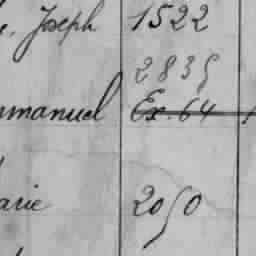 Joseph 1522
2835
mmanuel Ex. 64
arie 2050